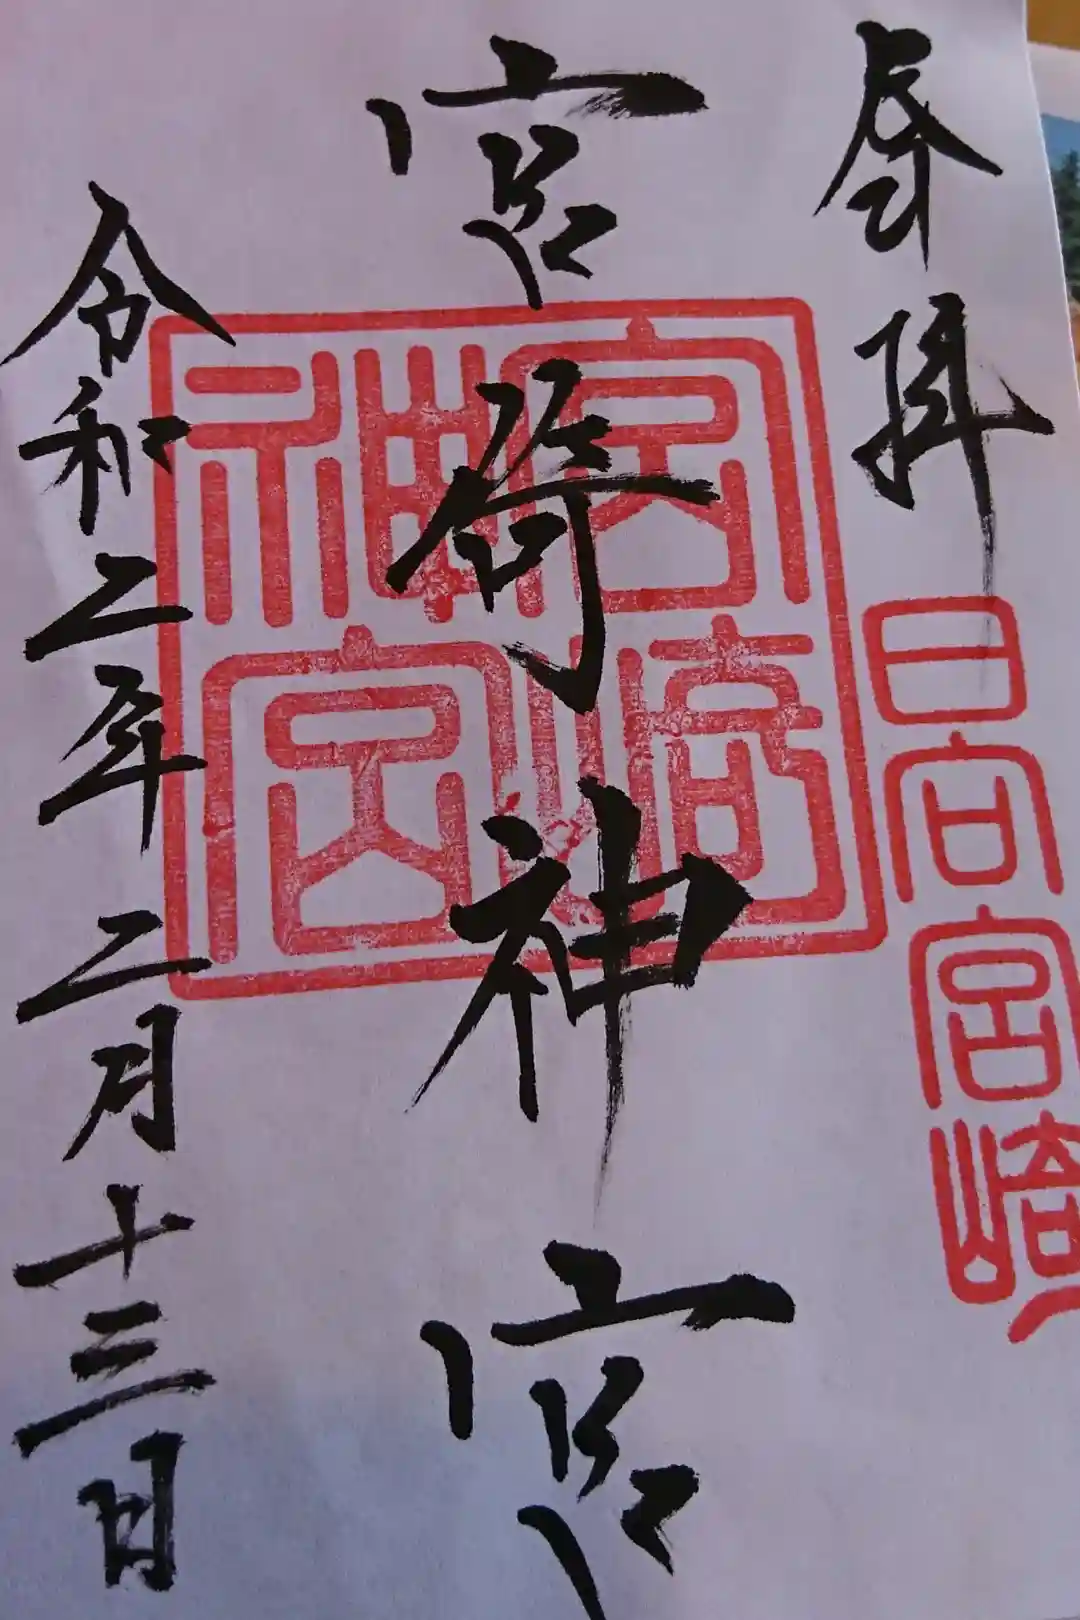 奉拝
日向宮崎
宮嵜神宮
宮崎神宮
令和二年二月十三日